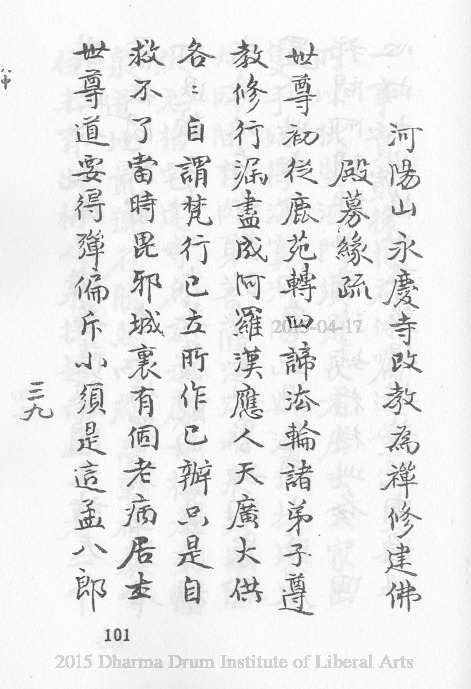 河陽山永慶寺改教為禪修建佛
殿募緣疏
世尊初從鹿苑轉四諦法輪諸弟子遵
教修行漏盡成阿羅漢應人天廣大供
各〻自謂梵行已立所作已辦只是自
救不了當時毘邪城裏有個老病居士
世尊道要得彈偏斥小須是這孟八郎
三九
101
2015-04-17
2015 Dharma Drum Institute of Liberal Arts